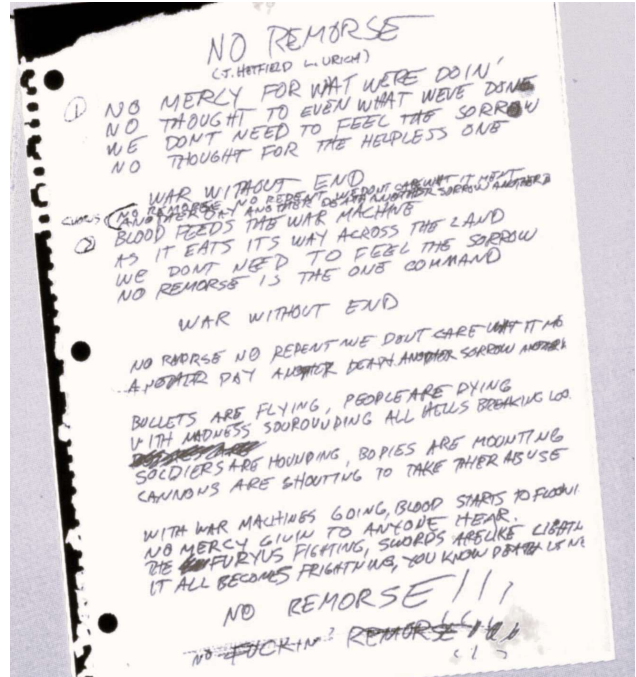 NO REMORSE
(J. HETFIELD L. URICH)
① NO MERCY FOR WAT WERE DOIN'
NO THOUGHT TO EVEN WHAT WEVE DONE
WE DONT NEED TO FEEL THE SORROW
NO THOUGHT FOR THE HELPLESS ONE
WAR WITHOUT END
CHORUS (NO REMORSE NO REPENT WE DONT CARE WHAT IT MENT
ANOTHER DAY ANOTHER DEATH ANOTHER SORROW ANOTHER B
② BLOOD FEEDS THE WAR MACHINE
AS IT EATS ITS WAY ACROSS THE LAND
WE DONT NEED TO FEEL THE SORROW
NO REMORSE IS THE ONE COMMAND
WAR WITHOUT END
NO REMORSE NO REPENT WE DONT CARE WHAT IT ME
ANOTHER DAY ANOTHER DEATH ANOTHER SORROW ANOTHER
BULLETS ARE FLYING, PEOPLE ARE DYING
WITH MADNESS SOUROUNDING ALL HELLS BREAKING LOO
SOLDIERS ARE HOUNDING, BODIES ARE MOUNTING
CANNONS ARE SHOUTING TO TAKE THER ABUSE
WITH WAR MACHINES GOING, BLOOD STARTS TO FLOWI
NO MERCY GIVIN TO ANYONE HEAR.
THE FURYUS FIGHTING, SWORDS ARE LIKE LIGHTN
IT ALL BECOMES FRIGHTNING, YOU KNOW DEATH IS NE
NO REMORSE!!!
NO FUCKIN' REMORSE!!!